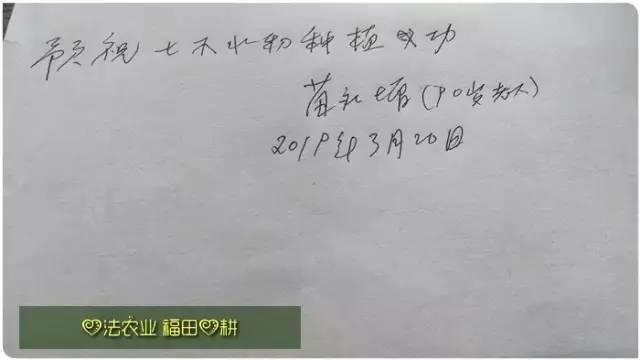 预祝七不水稻种植成功
苗 (90岁老人)
2019年3月20日
法农业 福田 耕